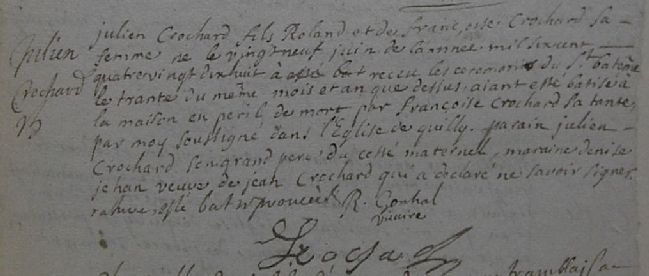 Julien
Crochard
julien Crochard fils Roland et de françoise Crochard sa
femme ne le vingt neuf juin de lannee mil six cent
quatre vingt dix huit a receu les ceremonies du St bateme
le trante du même mois et an que dessus aiant esté batisé à
la maison en peril de mort par françoise Crochard sa tante,
par moy soussigné dans l'Eglise de quilly. parain julien
Crochard son grand pere du costé maternel, maraine denise
jehan veuve de jean Crochard qui a declaré ne savoir signer.
rature bat approuvée R.
vicaire